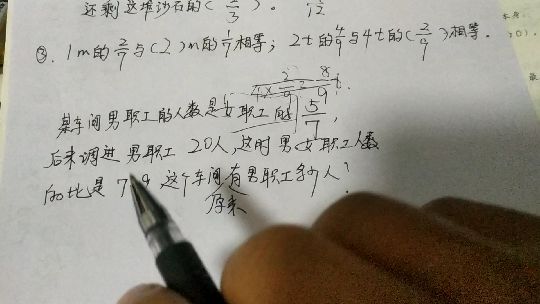 还剩这堆沙石的(2/3)。 /12
③. 1m的2/7与(2)m的1/7相等; 2t的4/9与4t的(2/9)相等.
某车间男职工的人数是女职工的5/7,
后来调进男职工20人,这时男女职工人数
的比是7:9 这个车间有男职工多少人?
原来